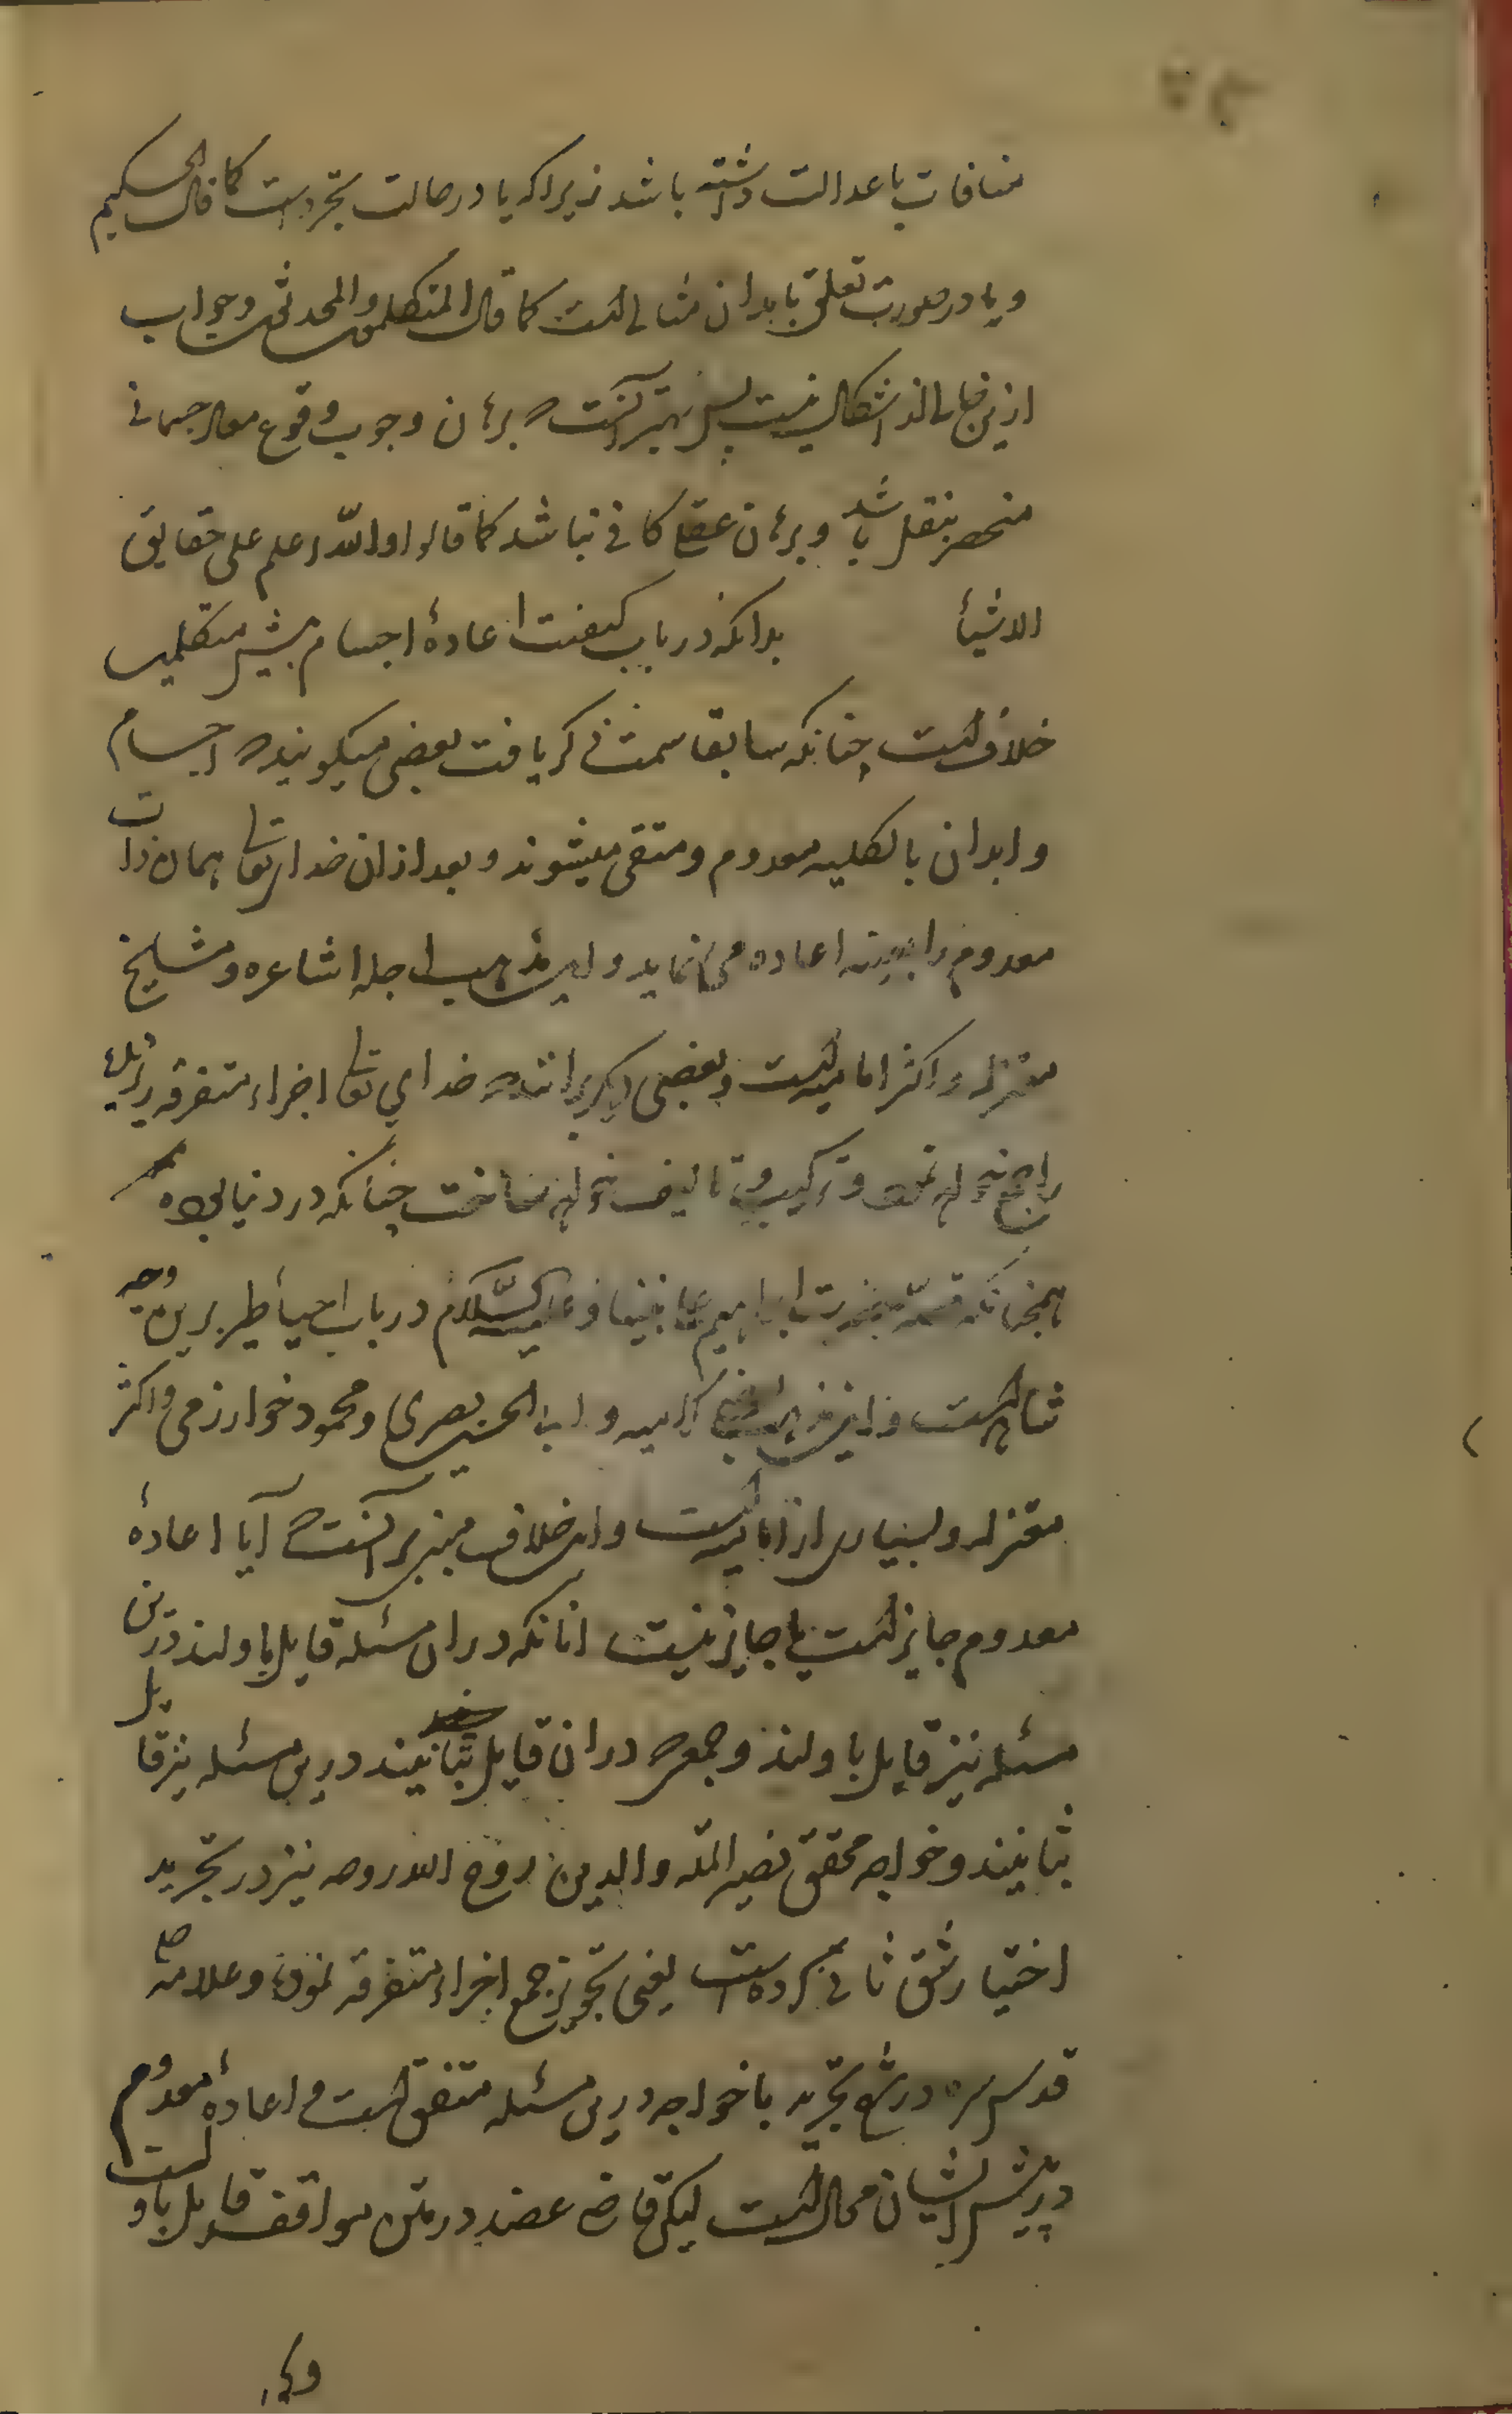 منافات با عدالت داشته باشد زیرا که یا در حالت تجرد است کما قال الحکیم
و یا در صورت تعلق با بدان مثالی است کما قال المتکلمون والمحدثون و جواب
ازین خالی از اشکال نیست پس بهتر آنست که برهان وجوب وقوع معاد جسمانی
منحصر بنقل باشد و برهان عقلی کافی نباشد کما قالوا والله اعلم علی حقایق
الاشیأ بدانکه در باب کیفیت اعادهٔ اجسام پیش متکلمین
خلاف است چنانکه سابقا سمت ذکر یافت بعضی میکویند که اجسام
و ابدان بالکلیه معدوم و منتفی میشوند و بعد از ان خدایتعا همان ذات
معدوم را بعینه اعاده می نماید و این مذهب اجله اشاعره و مشایخ
معتزله و اکثر امامیه است و بعضی دیکر برانند که خدای تعا اجزاء متفرقه
را جمع خواهد نمود و ترکیب و تالیف خواهد ساخت چنانکه در دنیا بوده
همچنانکه قصه حضرت ابراهیم علی نبینا و علیه السلام در باب احیأ طیر برین وجه
شاهد است و این مذهب کرامیه و ابو الحسین بصری و محمود خوارزمی و اکثر
معتزله و بسیاری از امامیه است و این خلاف مبنی بر آنست که آیا اعادهٔ
معدوم جایز است یا جایز نیست انانکه در ان مسئله قایل باولند درین
مسئله نیز قایل باولند و جمعی که در ان قایل بثانیند درین مسئله نیز قایل
بثانیند و خواجه محقق نصیر الملّه والدین روح الله روحه نیز در تجرید
اختیار شق ثانی کرده است یعنی تجویز جمع اجزاء متفرقه نموده و علامه حلی
قدس سره در شرح تجرید با خواجه درین مسئله متفق است و اعادهٔ معدوم
در پیش ایشان محال است لیکن قاضی عضد در متن مواقف قایل باول است